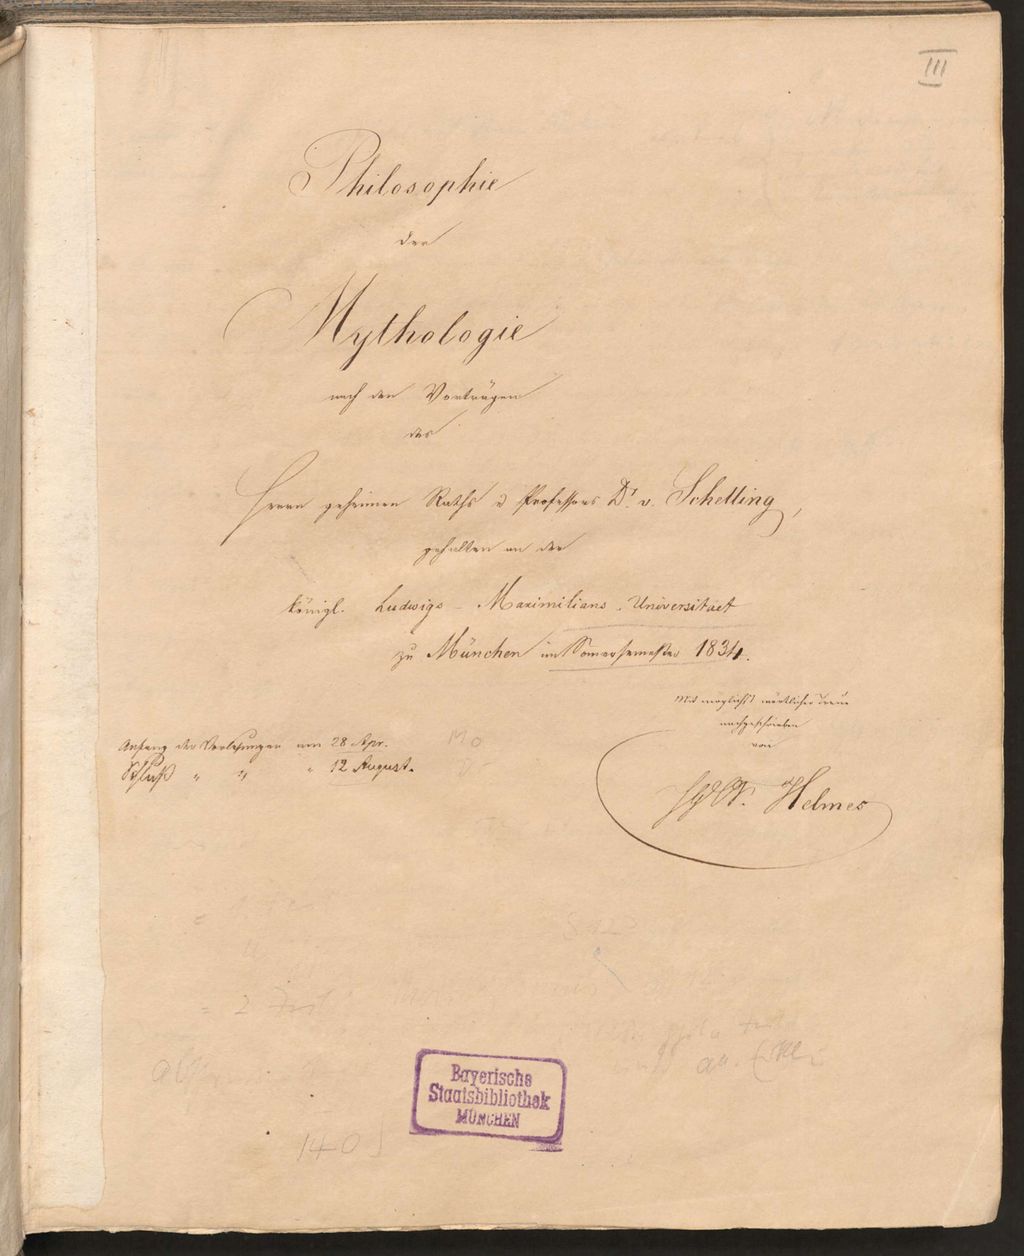 III
Philosophie
der
Mythologie
nach den Vorträgen
des
Herrn geheimen Raths u Professors Dr. v. Schelling,
gehalten an der
königl. Ludwigs - Maximilians - Universitaet
zu München im Som̄ersemester 1834.
Mit möglichst wörtlicher Treue
nachgeschrieben
von
Helmes
Anfang der Vorlesungen am 28 Apr.
Schluß " " " 12 August.
Bayerische
Staatsbibliothek
MÜNCHEN